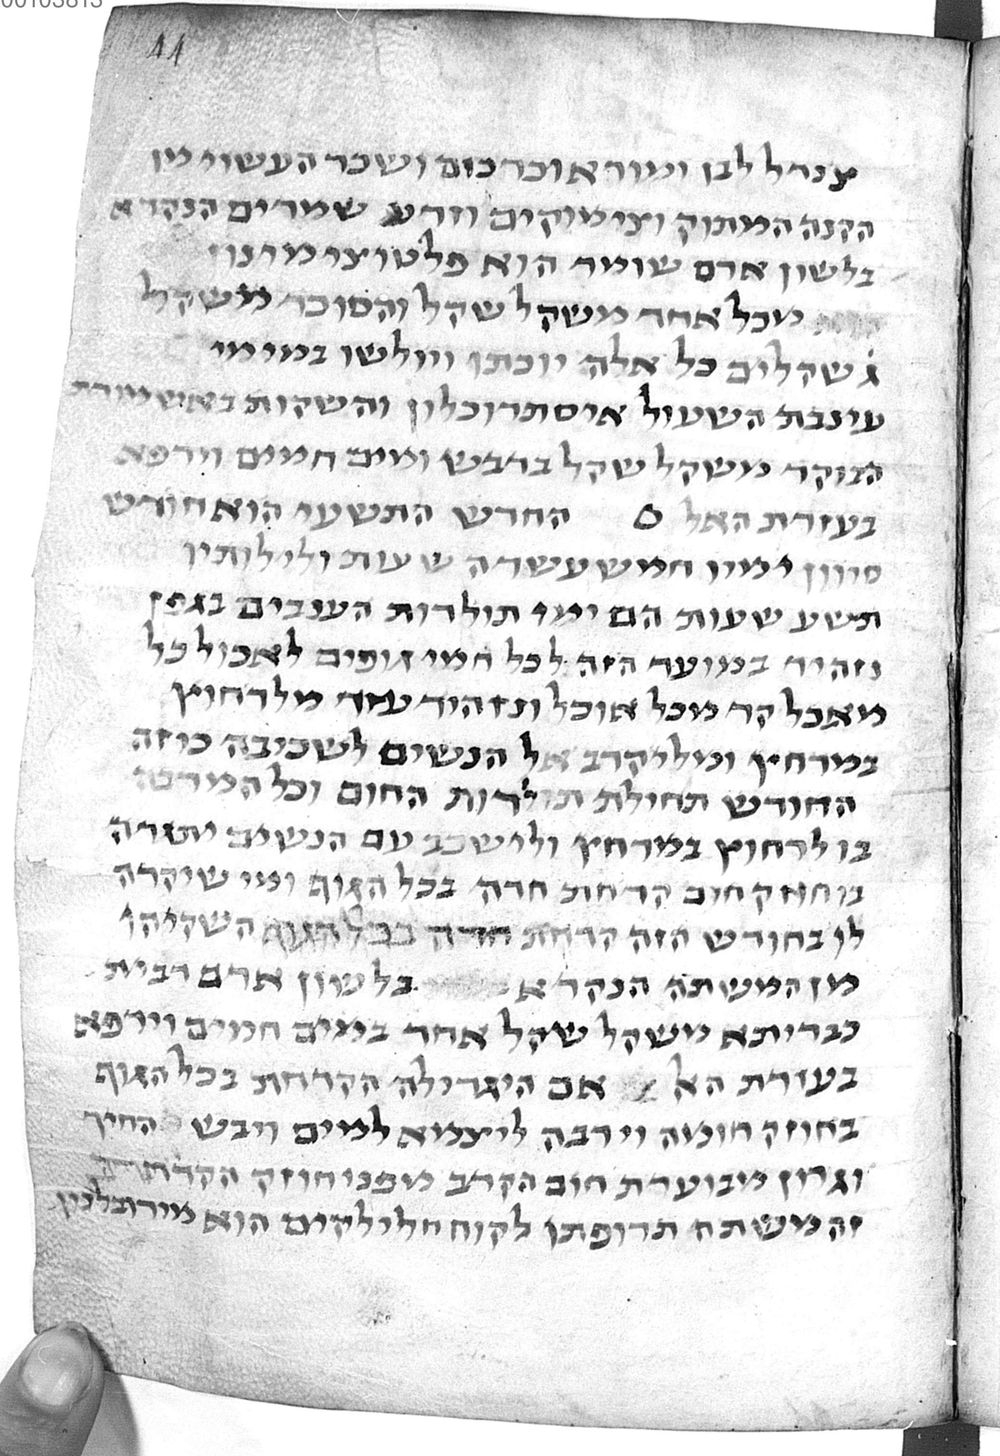 00103813
44
צנדל לבן ומור או כרכום ושכר העשוי מן
הקנה המתוק וצימוקים וזרע שמרים הנקרא
בלשון ארם שומר הוא פלטוצי מרנון
מכל אחד משקל שקל והסוכר משקל
ג שקלים כל אלה יוכתן ויולשו במימי
עינבת השעול איסתרוכלון והשקות באשמורת
הבוקר משקל שקל בדבש ומים חמים וירפא
בעזרת האל ס החדש התשעי הוא חודש
סיוון ימיו חמש עשרה שעות ולילותיו
תשע שעות הם ימי תולדות הענבים בגפן
נזהיר במועד הזה לכל חמי גופים לאכול כל
מאכל קר מכל אוכל ונזהיר עוד מלרחוץ
במרחץ ומליקרב אל הנשים לשכיבה כי זה
החודש תחילת תולדות החום וכל המרבה
בו לרחוץ במרחץ ולישכב עם הנשים יתגרה
בו חוזק חום קדחת חדה בכל הגוף ומי שיקרה
לו בחודש הזה קדחת חדה בכל הגוף השקיהו
מן המשתה הנקרא בלשון ארם רבית
כבריתא משקל שקל אחד במים חמים וירפא
בעזרת האל אם היגדילה הקדחת בכל הגוף
בחוזק חומה וירבה לייצמא למים ויבש החיך
וגרון מבוערת חום הקרב מפני חוזק הקדחת
זה משתה תרופתו לקוח חלילקים הוא